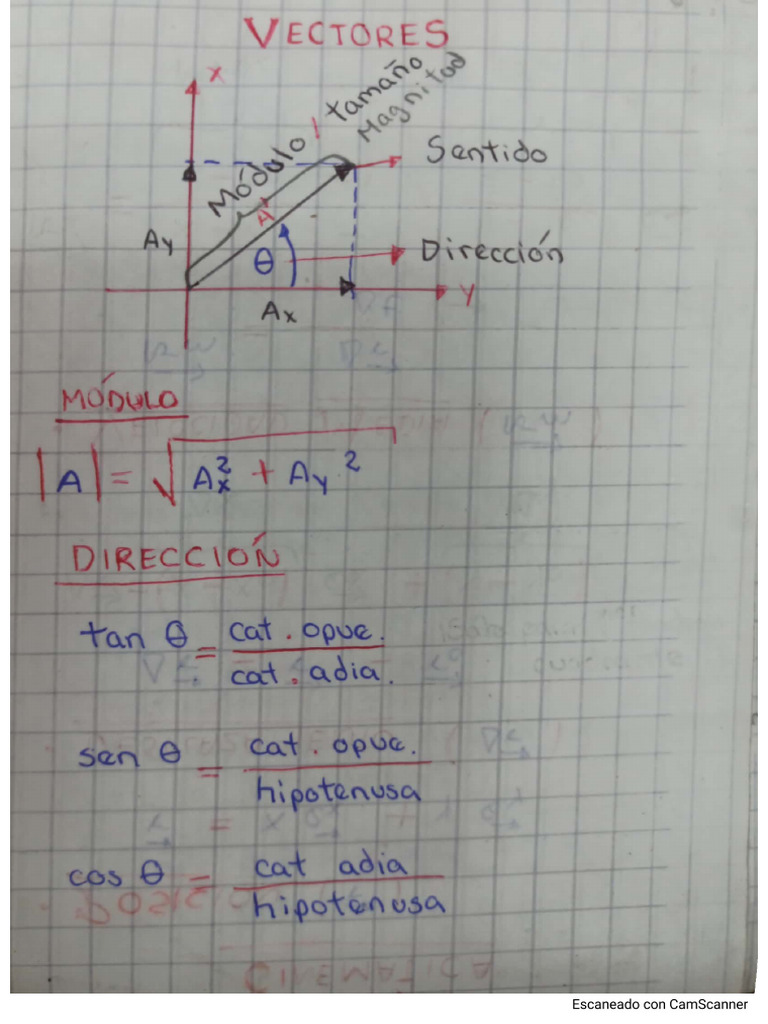 VECTORES
X
Módulo / tamaño
Magnitud
Sentido
A
Ay
θ
Dirección
Ax
Y
MÓDULO
|A| = √Ax² + Ay²
DIRECCIÓN
tan θ = cat. opue. / cat. adia.
sen θ = cat. opue. / hipotenusa
cos θ = cat adia / hipotenusa
Escaneado con CamScanner